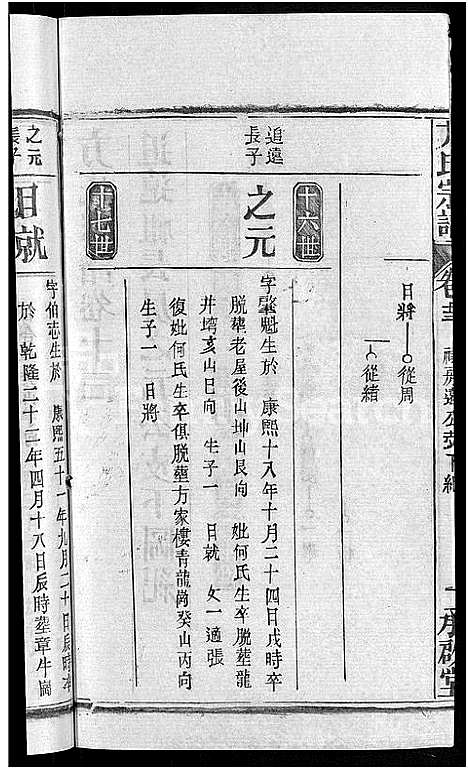 方氏宗譜
卷十三
二 序
日將 從周
從緒
十六世
追遠長子
之元
字肇魁生於 康熙十八年十月二十四日戌時卒
脫葬老屋後山坤山艮向 妣何氏生卒脫葬龍
井塆亥山巳向 生子一 日就 女一適張
復妣何氏生卒俱脫葬方家樓青龍崗癸山丙向
生子一 日將
十七世
之元長子
日就
字伯志生於 康熙五十一年九月二十日辰時卒
於 乾隆二十三年四月十八日辰時葬章牛崗